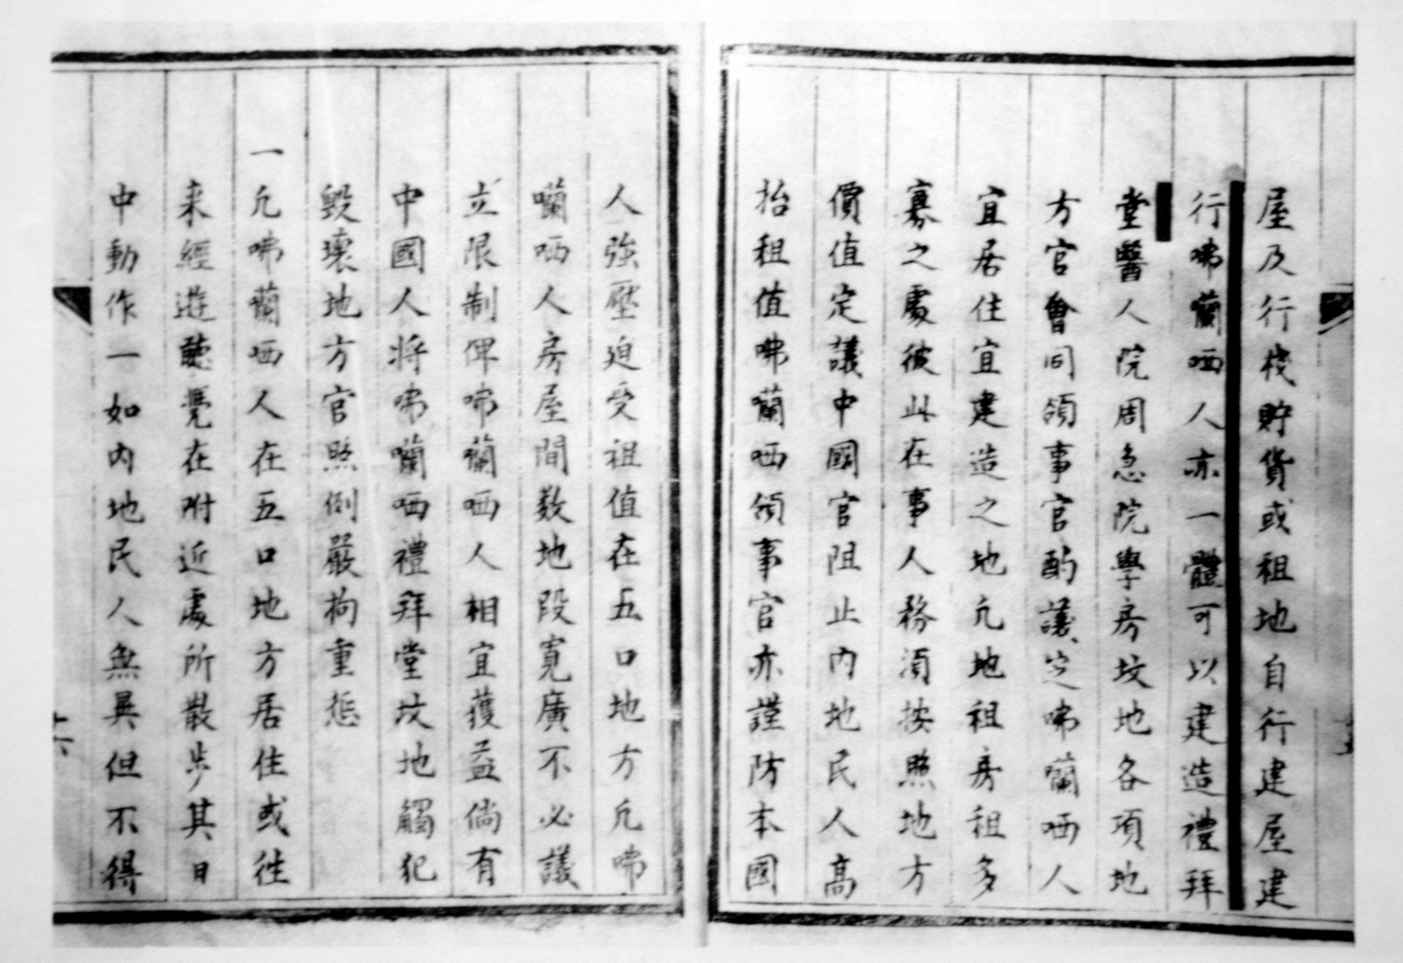 屋及行棧貯貨或租地自行建屋建
行咈囒哂人亦一體可以建造禮拜
堂醫人院周急院學房坟地各項地
方官會同領事官酌議定咈囒哂人
宜居住宜建造之地凢地租房租多
寡之處彼此在事人務須按照地方
價值定議中國官阻止內地民人高
抬租值咈囒哂領事官亦謹防本國
人強壓迫受租值在五口地方凢咈
囒哂人房屋間数地段寬廣不必議
立限制俾咈囒哂人相宜獲益倘有
中國人将咈囒哂禮拜堂坟地觸犯
毀壞地方官照例嚴拘重懲
一凢咈囒哂人在五口地方居住或徃
来經遊聽凴在附近處所散步其日
中動作一如內地民人無異但不得